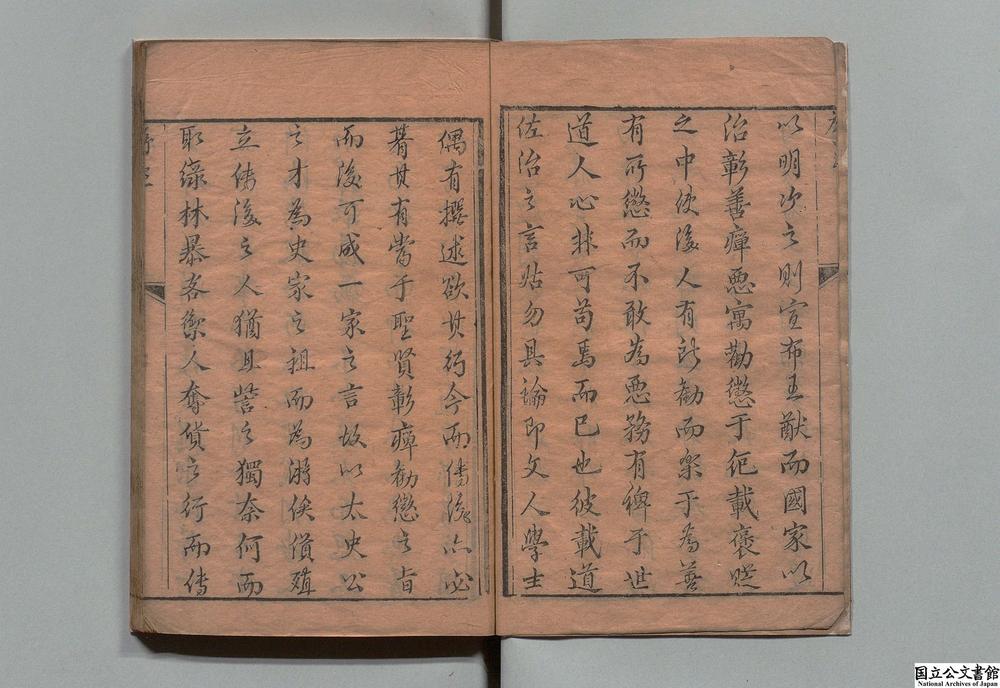 以明次之則宣布王猷而國家以
治彰善癉惡寓勸懲于紀載褒貶
之中使後人有所勸而樂于為善
有所懲而不敢為惡務有裨于世
道人心非可苟焉而已也彼載道
佐治之言姑勿具論即文人學士
偶有撰述欲其行今而傳後亦必
着其有當于聖賢彰癉勸懲之旨
而後可成一家之言故以太史公
之才為史家之祖而為游俠貨殖
立傳後之人猶且訾之獨奈何而
取綠林暴客禦人奪貨之行而傳
国立公文書館
National Archives of Japan